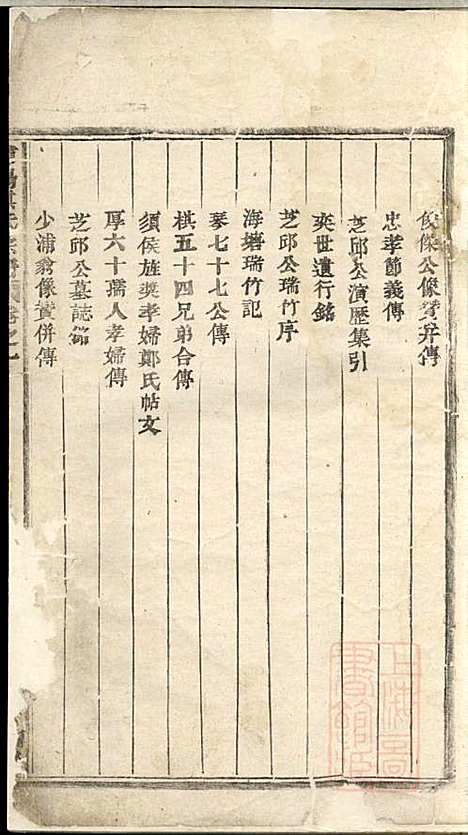 俊傑公像贊并傳
忠孝節義傳
芝邱公演歷集引
奕世遺行銘
芝邱公瑞竹序
海籌瑞竹記
琴七十七公傳
棋五十四兄弟合傳
須侯旌獎孝婦鄭氏帖文
厚六十孺人孝婦傳
芝邱公墓誌節
少浦翁像贊併傳